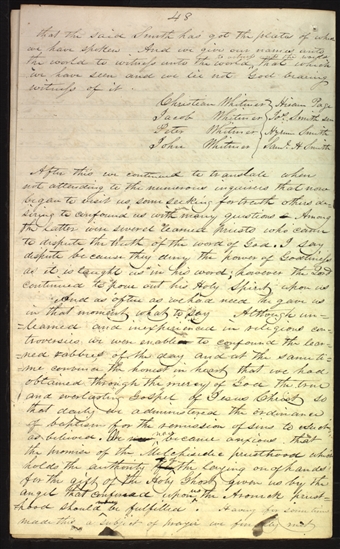 48
that the said Smith has got the plates of which
we have spoken. And we give our names unto
the world to witness unto the world, that which
we have seen and we lie not God bearing
witness of it.
Christian Whitmer Hiram Page
Jacob Whitmer Jos. Smith sen
Peter Whitmer Hyrum Smith
John Whitmer Saml. H Smith
After this we continued to translate when
not attending to the numerous inquirers that now
began to visit us some seeking for truth others de-
siring to confound us with many questions Among
the latter were several learned priests who came
to dispute the truth of the word of God. I say
dispute because they deny the power of Godliness
as it is taught us in his word; however the Lord
continued to pour out his Holy Spirit upon us
and as often as we had need he gave us
in that moment what to say Although un-
-learned and inexperienced in religious con-
troversies we were enabled to confound the lear-
ned rabbies of the day and at the same ti-
me convince the honest in heart that we had
obtained through the mercy of God the true
and everlasting Gospel of Jesus Christ so
that daily we administered the ordinance
of baptism for the remission of sins to such
as believed. We now became anxious that
the promise of the Melchisedec priesthood which
holds the authority the laying on of hands
for the gift of the Holy Ghost given us by the
angel that confered upon us the Aronick priest-
hood should be fulfilled. Having for sometime
made this a subject of prayer we finally met